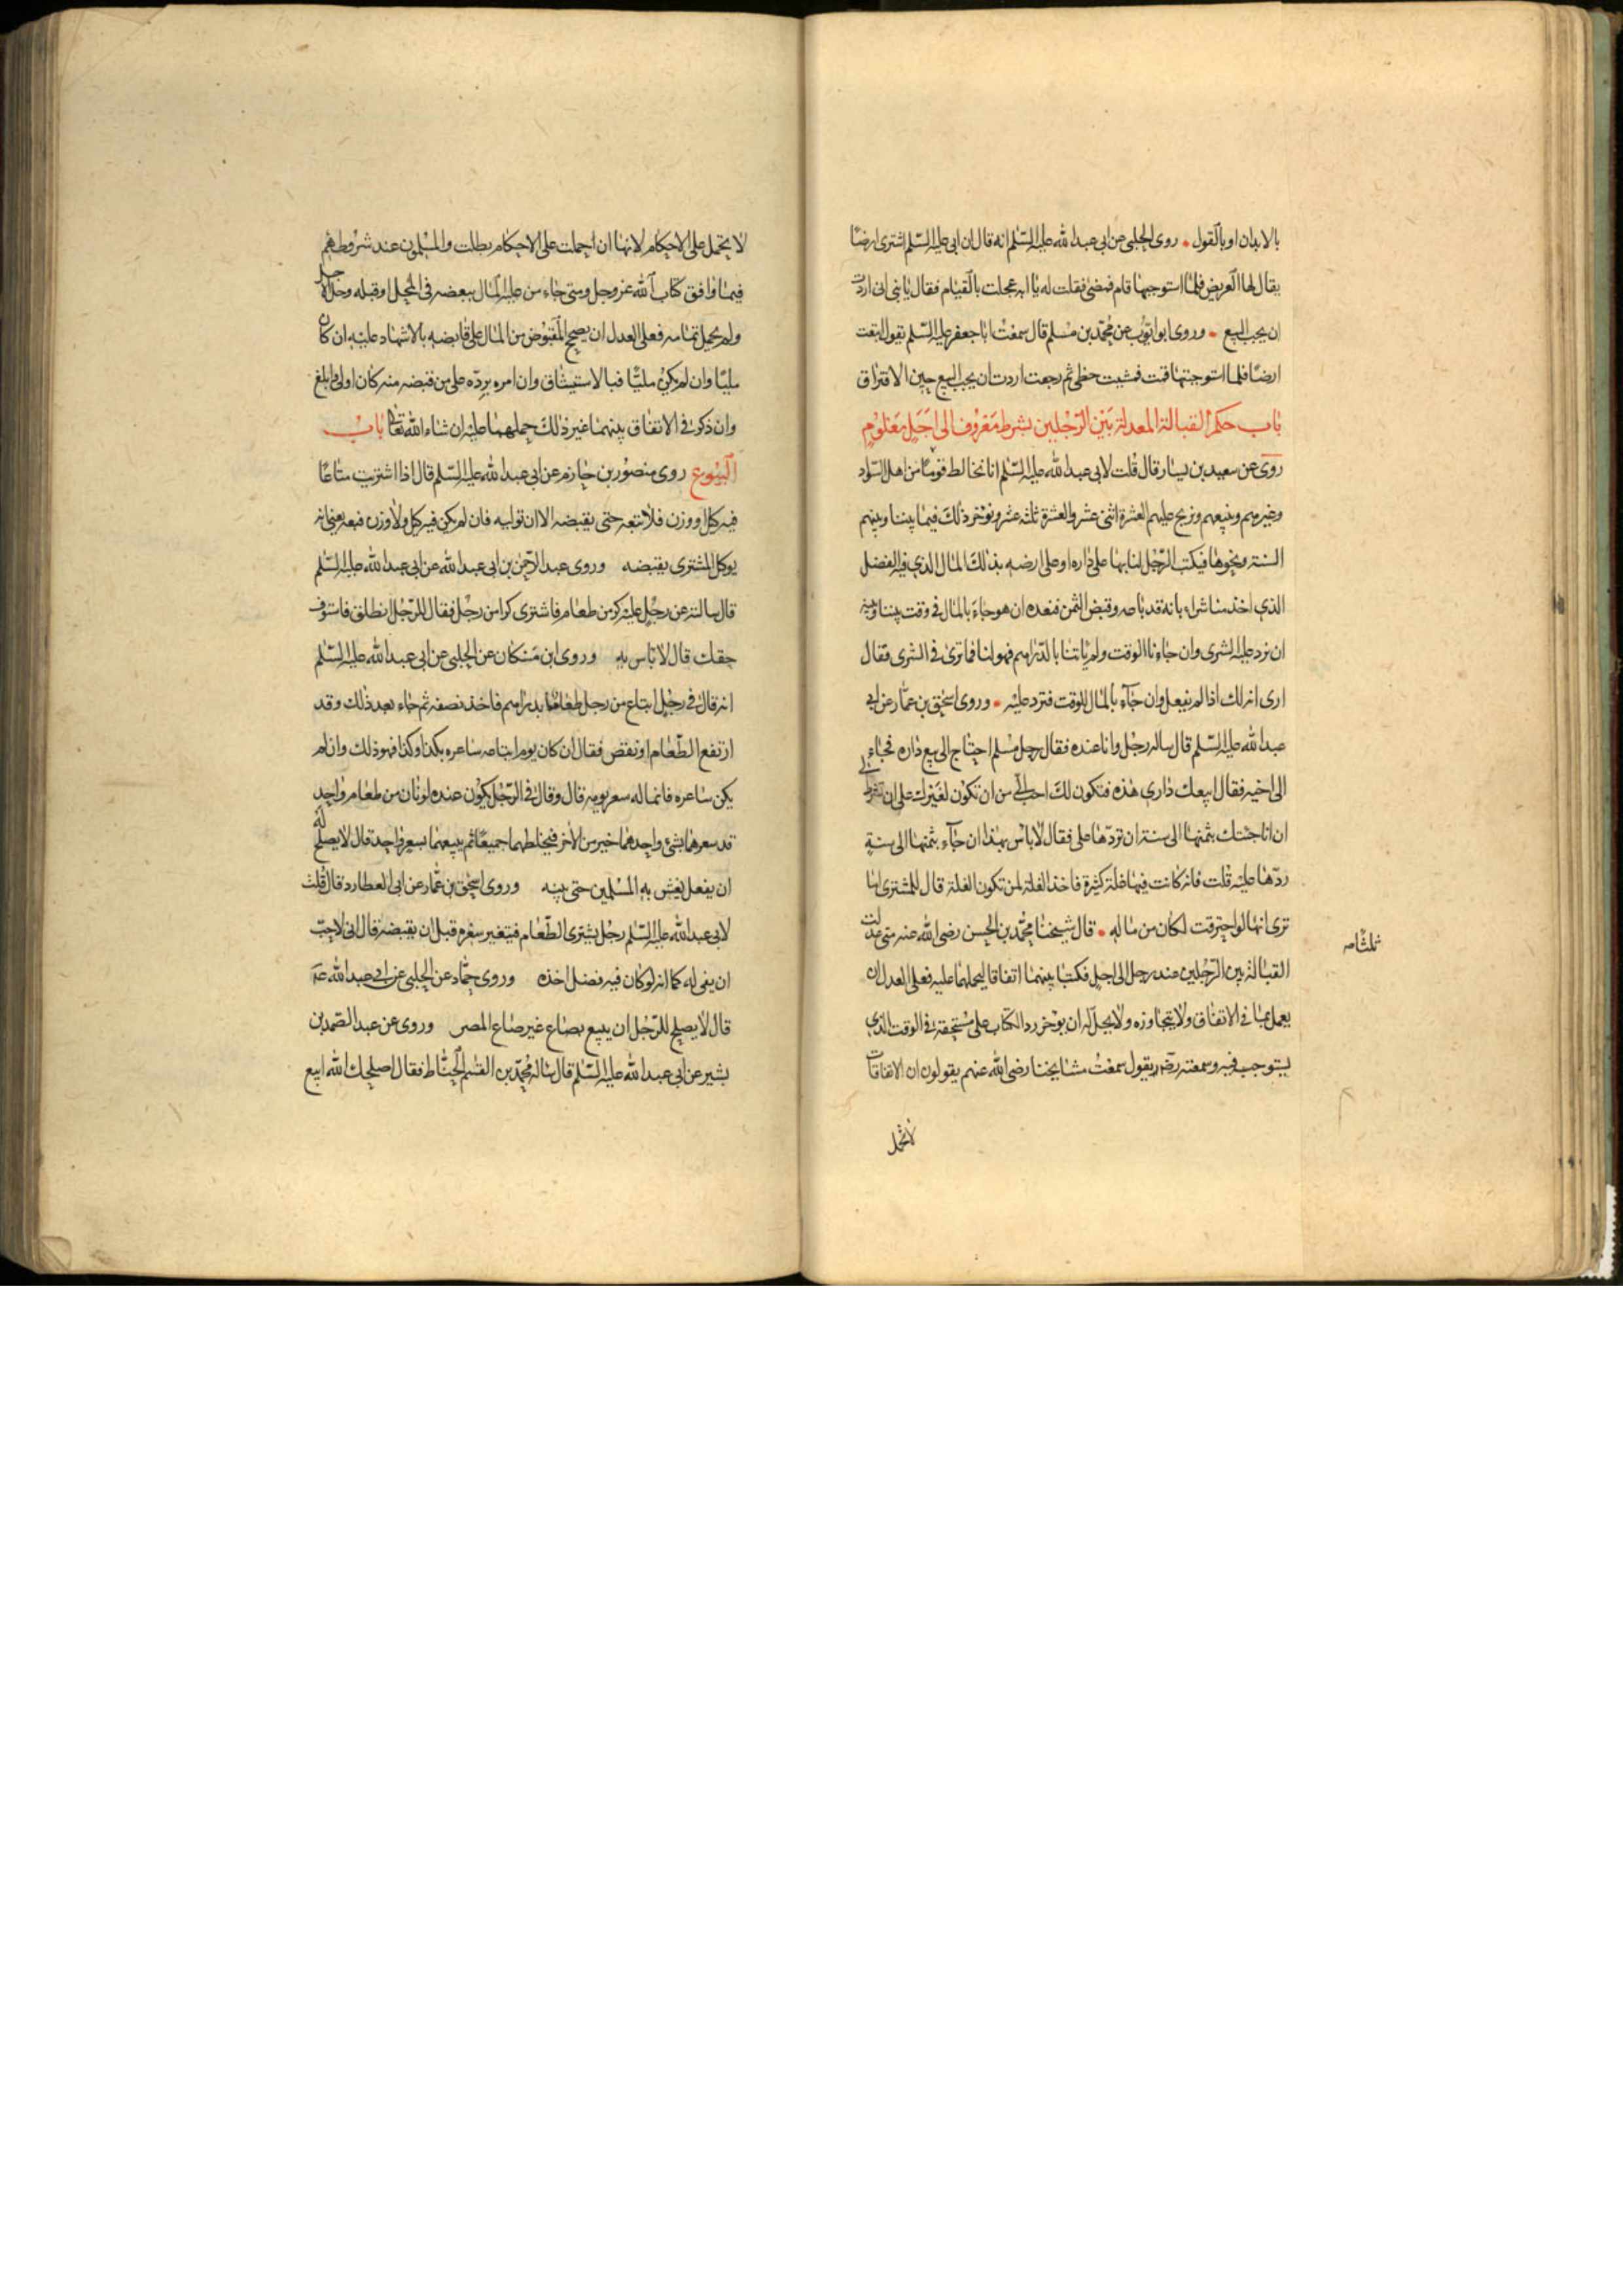 بالابدان او بالقول روى الحلبى عن ابى عبد الله عليه السّلم انه قال ان ابى عليه السّلم اشترى ارضًا
يقال لها العريض فلما استوجبها قام فمضى فقلت له يا ابه عجلت بالقيام فقال يا بنى انى اردت
ان يجب البيع وروى ابو ايّوب عن محمّد بن مسلم قال سمعت ابا جعفر عليه السّلم يقول ابتعت
ارضًا فلما استوجبتها قمت فمشيت خطى ثم رجعت اردت ان يجب البيع حين الافتراق
باب حكم القبالة المعدلة بين الرّجلين بشرط معروف الى اجل معلوم
روى عن سعيد بن يسار قال قلت لابى عبد الله عليه السّلم انا نخالط قومًا من اهل السّواد
وغيرهم ونبيعهم ونربح عليهم العشرة اثنى عشر والعشرة ثلثه عشر ونوخر ذلك فيما بيننا وبينهم
السنة ونحوها فيكتب الرّجل لنا بها على داره او على ارضه بذلك المال الذي فيه الفضل
الذي اخذ منا شراء بانه قد باعه وقبض الثمن فنعده ان هو جاء بالمال فى وقت بيننا وبينه
ان نرد عليه الشرى وان جاءنا الوقت ولم ياتنا بالدّراهم فهو لنا فما ترى فى الشرى فقال
ارى انه لك اذا لم يفعل وان جآء بالمال للوقت فترد عليه وروى اسحق بن عمّار عن ابى
عبد الله عليه السّلم قال ساله رجل وانا عنده فقال رجل مسلم احتاج الى بيع داره فجاء
الى اخيه فقال ابيعك دارى هذه فتكون لك احب الى من ان تكون لغيرك على ان تشترط لى
ان انا جئتك بثمنها الى سنة ان تردّها على فقال لا باس بهذا ان جآء بثمنها الى سنة
ردّها عليه قلت فانه كانت فيها غلة كثيرة فاخذ الغلة لمن تكون الغلة قال للمشترى اما
ترى انها لو احترقت لكان من ماله قال شيخنا محمّد بن الحسن رضى الله عنه متى عدلت
القبالة بين الرّجلين عند رجل الى اجل فكتبا بينهما اتفاقا ليحملهما عليه فعلى العدل ان
يعمل بما فى الاتفاق ولا يتجاوزه ولا يحل له ان يوخر رد الكتاب على مستحقه فى الوقت الذى
يستوجب فيه وسمعته رضه يقول سمعت مشايخنا رضى الله عنهم يقولون ان الاتفاقات
لا تحمل
لا تحمل على الاحكام لانها ان احملت على الاحكام بطلت والمسلمون عند شروطهم
فيما وافق كتاب الله عز وجل ومتى جاء من عليه المال ببعضه فى المحل او قبله وحل الاجل
ولم يحمل تمامه فعلى العدل ان يصحح المقبوض من المال على قابضه بالاشهاد عليه ان كان
مليًا وان لم يكن مليًّا فبالاستيثاق وان امره بردّه على من قبضه منه كان اولى وابلغ
وان ذكر فى الاتفاق بينهما غير ذلك حملهما عليه ان شاء الله تعالى باب
البيوع روى منصور بن حازم عن ابى عبد الله عليه السّلم قال اذا اشتريت متاعًا
فيه كيل او وزن فلا تبعه حتى يقبضه الا ان توليه فان لم يكن فيه كيل ولا وزن فبعه يعنى انه
يوكل المشترى بقبضه وروى عبد الرّحمن بن ابى عبد الله عن ابى عبد الله عليه السّلم
قال سالته عن رجل عليه كر من طعام فاشترى كرا من رجل فقال للرّجل انطلق فاستوف
حقك قال لا باس به وروى ابن مسكان عن الحلبى عن ابى عبد الله عليه السّلم
انه قال فى رجل ابتاع من رجل طعامًا بدراهم فاخذ نصفه ثم جاء بعد ذلك وقد
ارتفع الطّعام او نقص فقال ان كان يوم ابتاعه ساعره بكذا وكذا فهو ذلك وان لم
يكن ساعره فانما له سعر يومه قال وقال فى الرّجل يكون عنده لونان من طعام واحد
قد سعرهما بشئ واحدهما خير من الأخر فيخلطهما جميعًا ثم يبيعهما بسعر واحد قال لا يصلح له
ان يفعل يغش به المسلمين حتى يبينه وروى اسحق بن عمّار عن ابى العطارد قال قلت
لابى عبد الله عليه السّلم رجل يشترى الطّعام فيتغير سعره قبل ان يقبضه قال انى لاحبّ
ان يفى له كما انه لو كان فيه فضل اخذه وروى حمّاد عن الحلبى عن ابى عبد الله عه
قال لا يصلح للرّجل ان يبيع بصاع غير صاع المصر وروى عن عبد الصّمد بن
بشير عن ابى عبد الله عليه السّلم قال ساله محمّد بن القسم الحنّاط فقال اصلحك الله ابيع